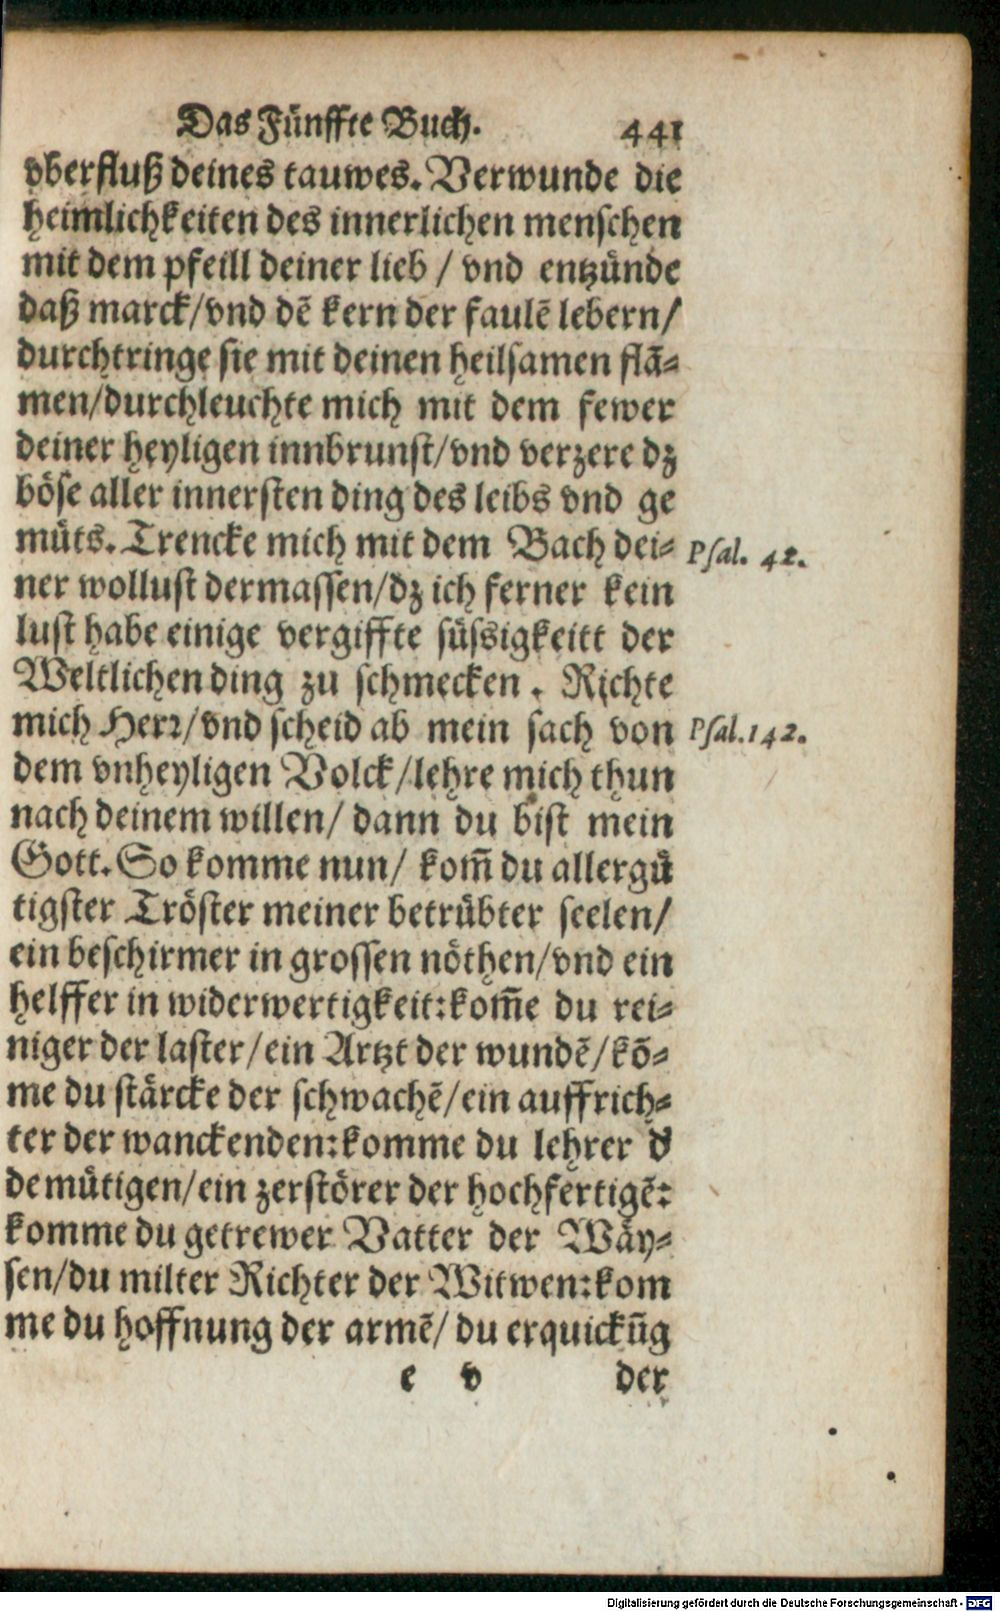 Das Fünffte Buch. 441
vberfluß deines tauwes. Verwunde die
heimlichkeiten des innerlichen menschen
mit dem pfeill deiner lieb / vnd entzünde
daß marck/vnd dẽ kern der faulẽ lebern/
durchtringe sie mit deinen heilsamen flã-
men/durchleuchte mich mit dem fewer
deiner heyligen innbrunst/vnd verzere dz
böse aller innersten ding des leibs vnd ge
müts. Trencke mich mit dem Bach dei- Psal. 42.
ner wollust dermassen/dz ich ferner kein
lust habe einige vergiffte süssigkeitt der
Weltlichen ding zu schmecken. Richte
mich Herr/vnd scheid ab mein sach von Psal. 142.
dem vnheyligen Volck/lehre mich thun
nach deinem willen/ dann du bist mein
Gott. So komme nun/ kom̃ du allergü
tigster Tröster meiner betrübter seelen/
ein beschirmer in grossen nöthen/vnd ein
helffer in widerwertigkeit:kom̃e du rei-
niger der laster/ein Artzt der wundẽ/kõ-
me du stärcke der schwachẽ/ein auffrich-
ter der wanckenden:komme du lehrer d̕
demütigen/ein zerstörer der hochfertigẽ:
komme du getrewer Vatter der Wäy-
sen/du milter Richter der Witwen:kom
me du hoffnung der armẽ/ du erquickũg
e v der
Digitalisierung gefördert durch die Deutsche Forschungsgemeinschaft - DFG